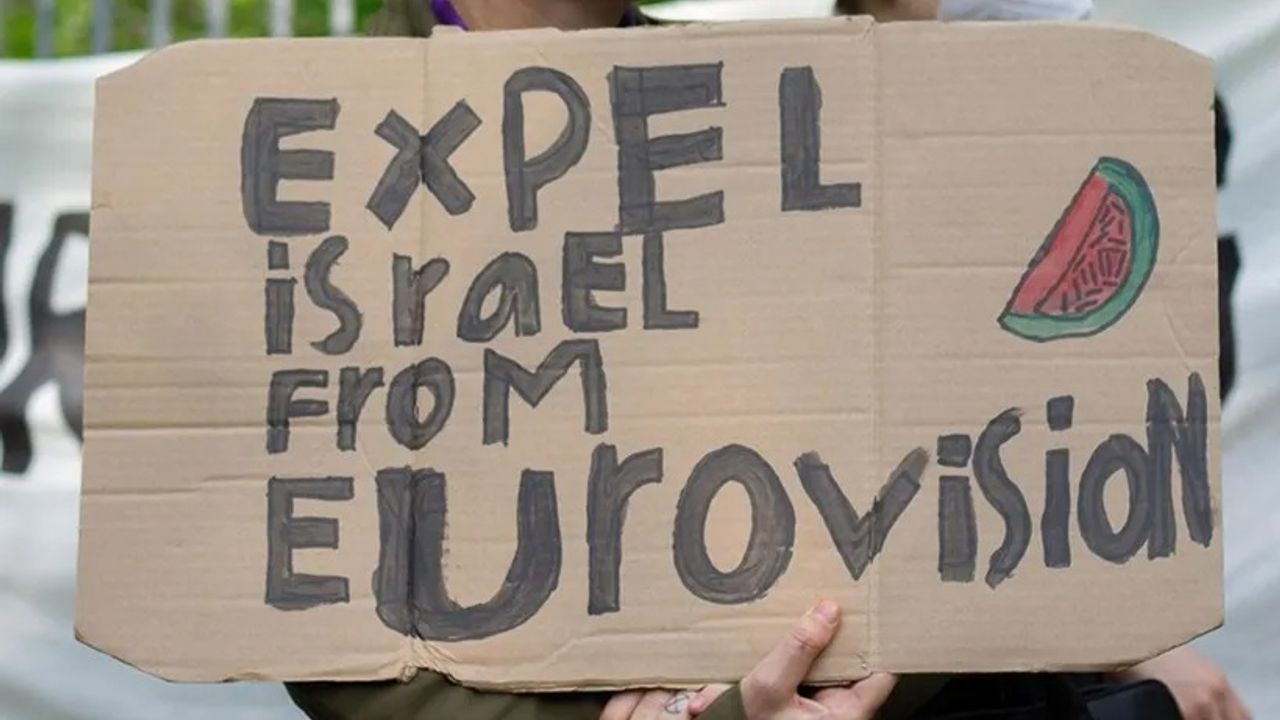 EXPEL
iSraEL
FroM
EUroviSioN